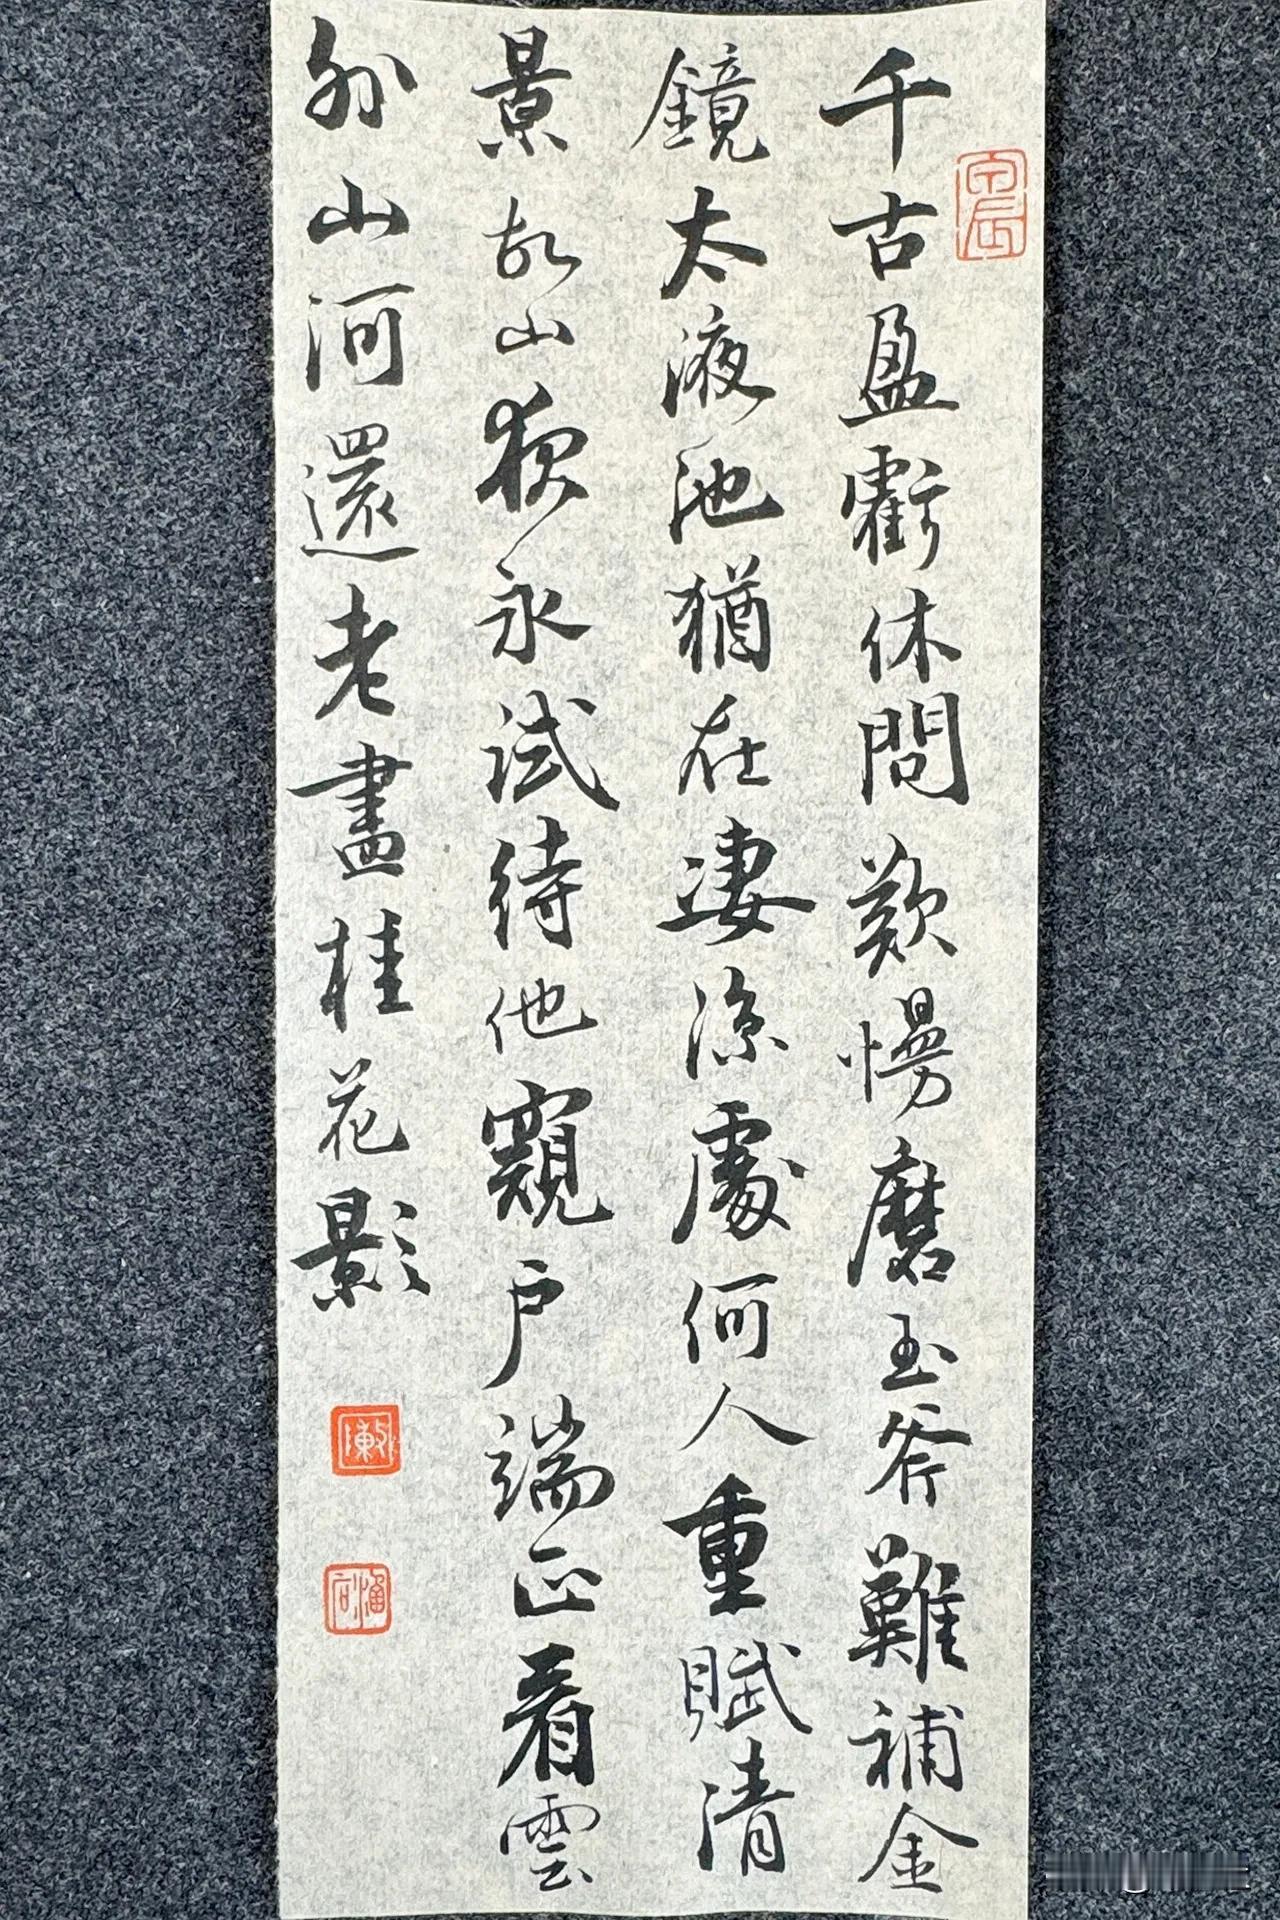 千古盈虧休問歎慢磨玉斧難補金
鏡太液池猶在淒涼處何人重賦清
景故山夜永試待他窺戶端正看雲
外山河還老盡桂花影